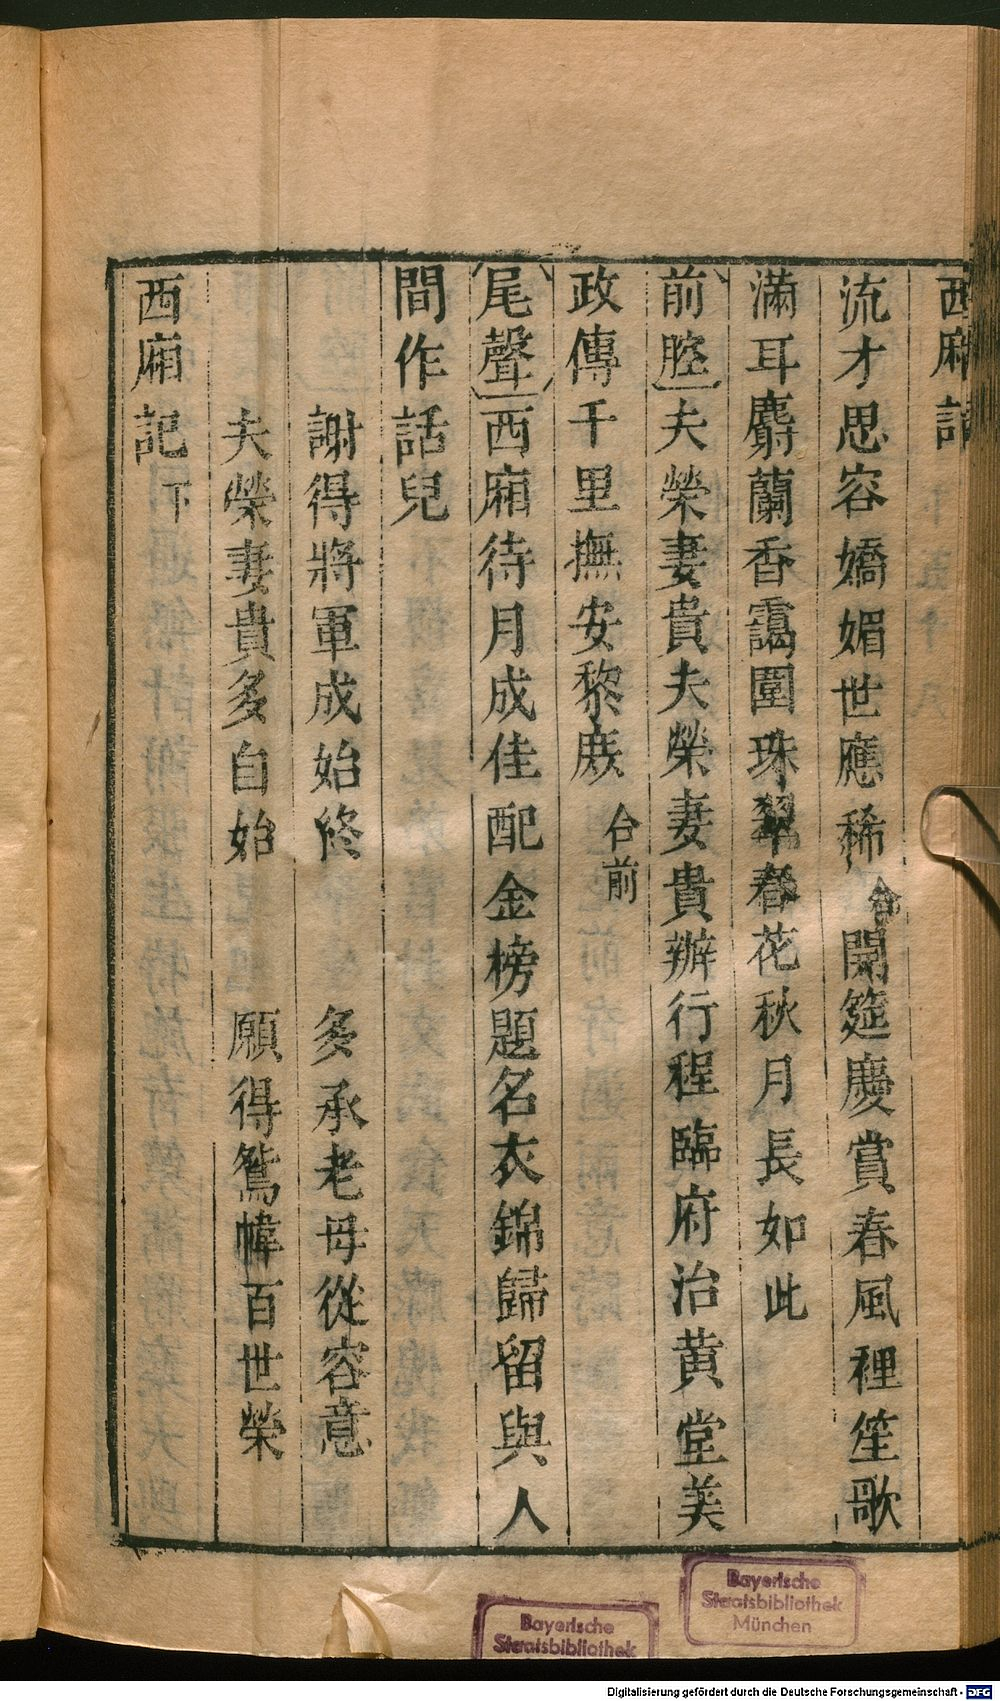 西廂記
流才思容嬌媚世應稀合開筵慶賞春風裡笙歌
滿耳麝蘭香靄圍珠翠春花秋月長如此
前腔夫榮妻貴夫榮妻貴辦行程臨府治黃堂美
政傳千里撫安黎庶合前
尾聲西廂待月成佳配金榜題名衣錦歸留與人
間作話兒
謝得將軍成始終 多承老母從容意
夫榮妻貴多自始 願得鴛幃百世榮
西廂記下
Bayerische
Staatsbibliothek
München
Bayerische
Staatsbibliothek
Digitalisierung gefördert durch die Deutsche Forschungsgemeinschaft - DFG